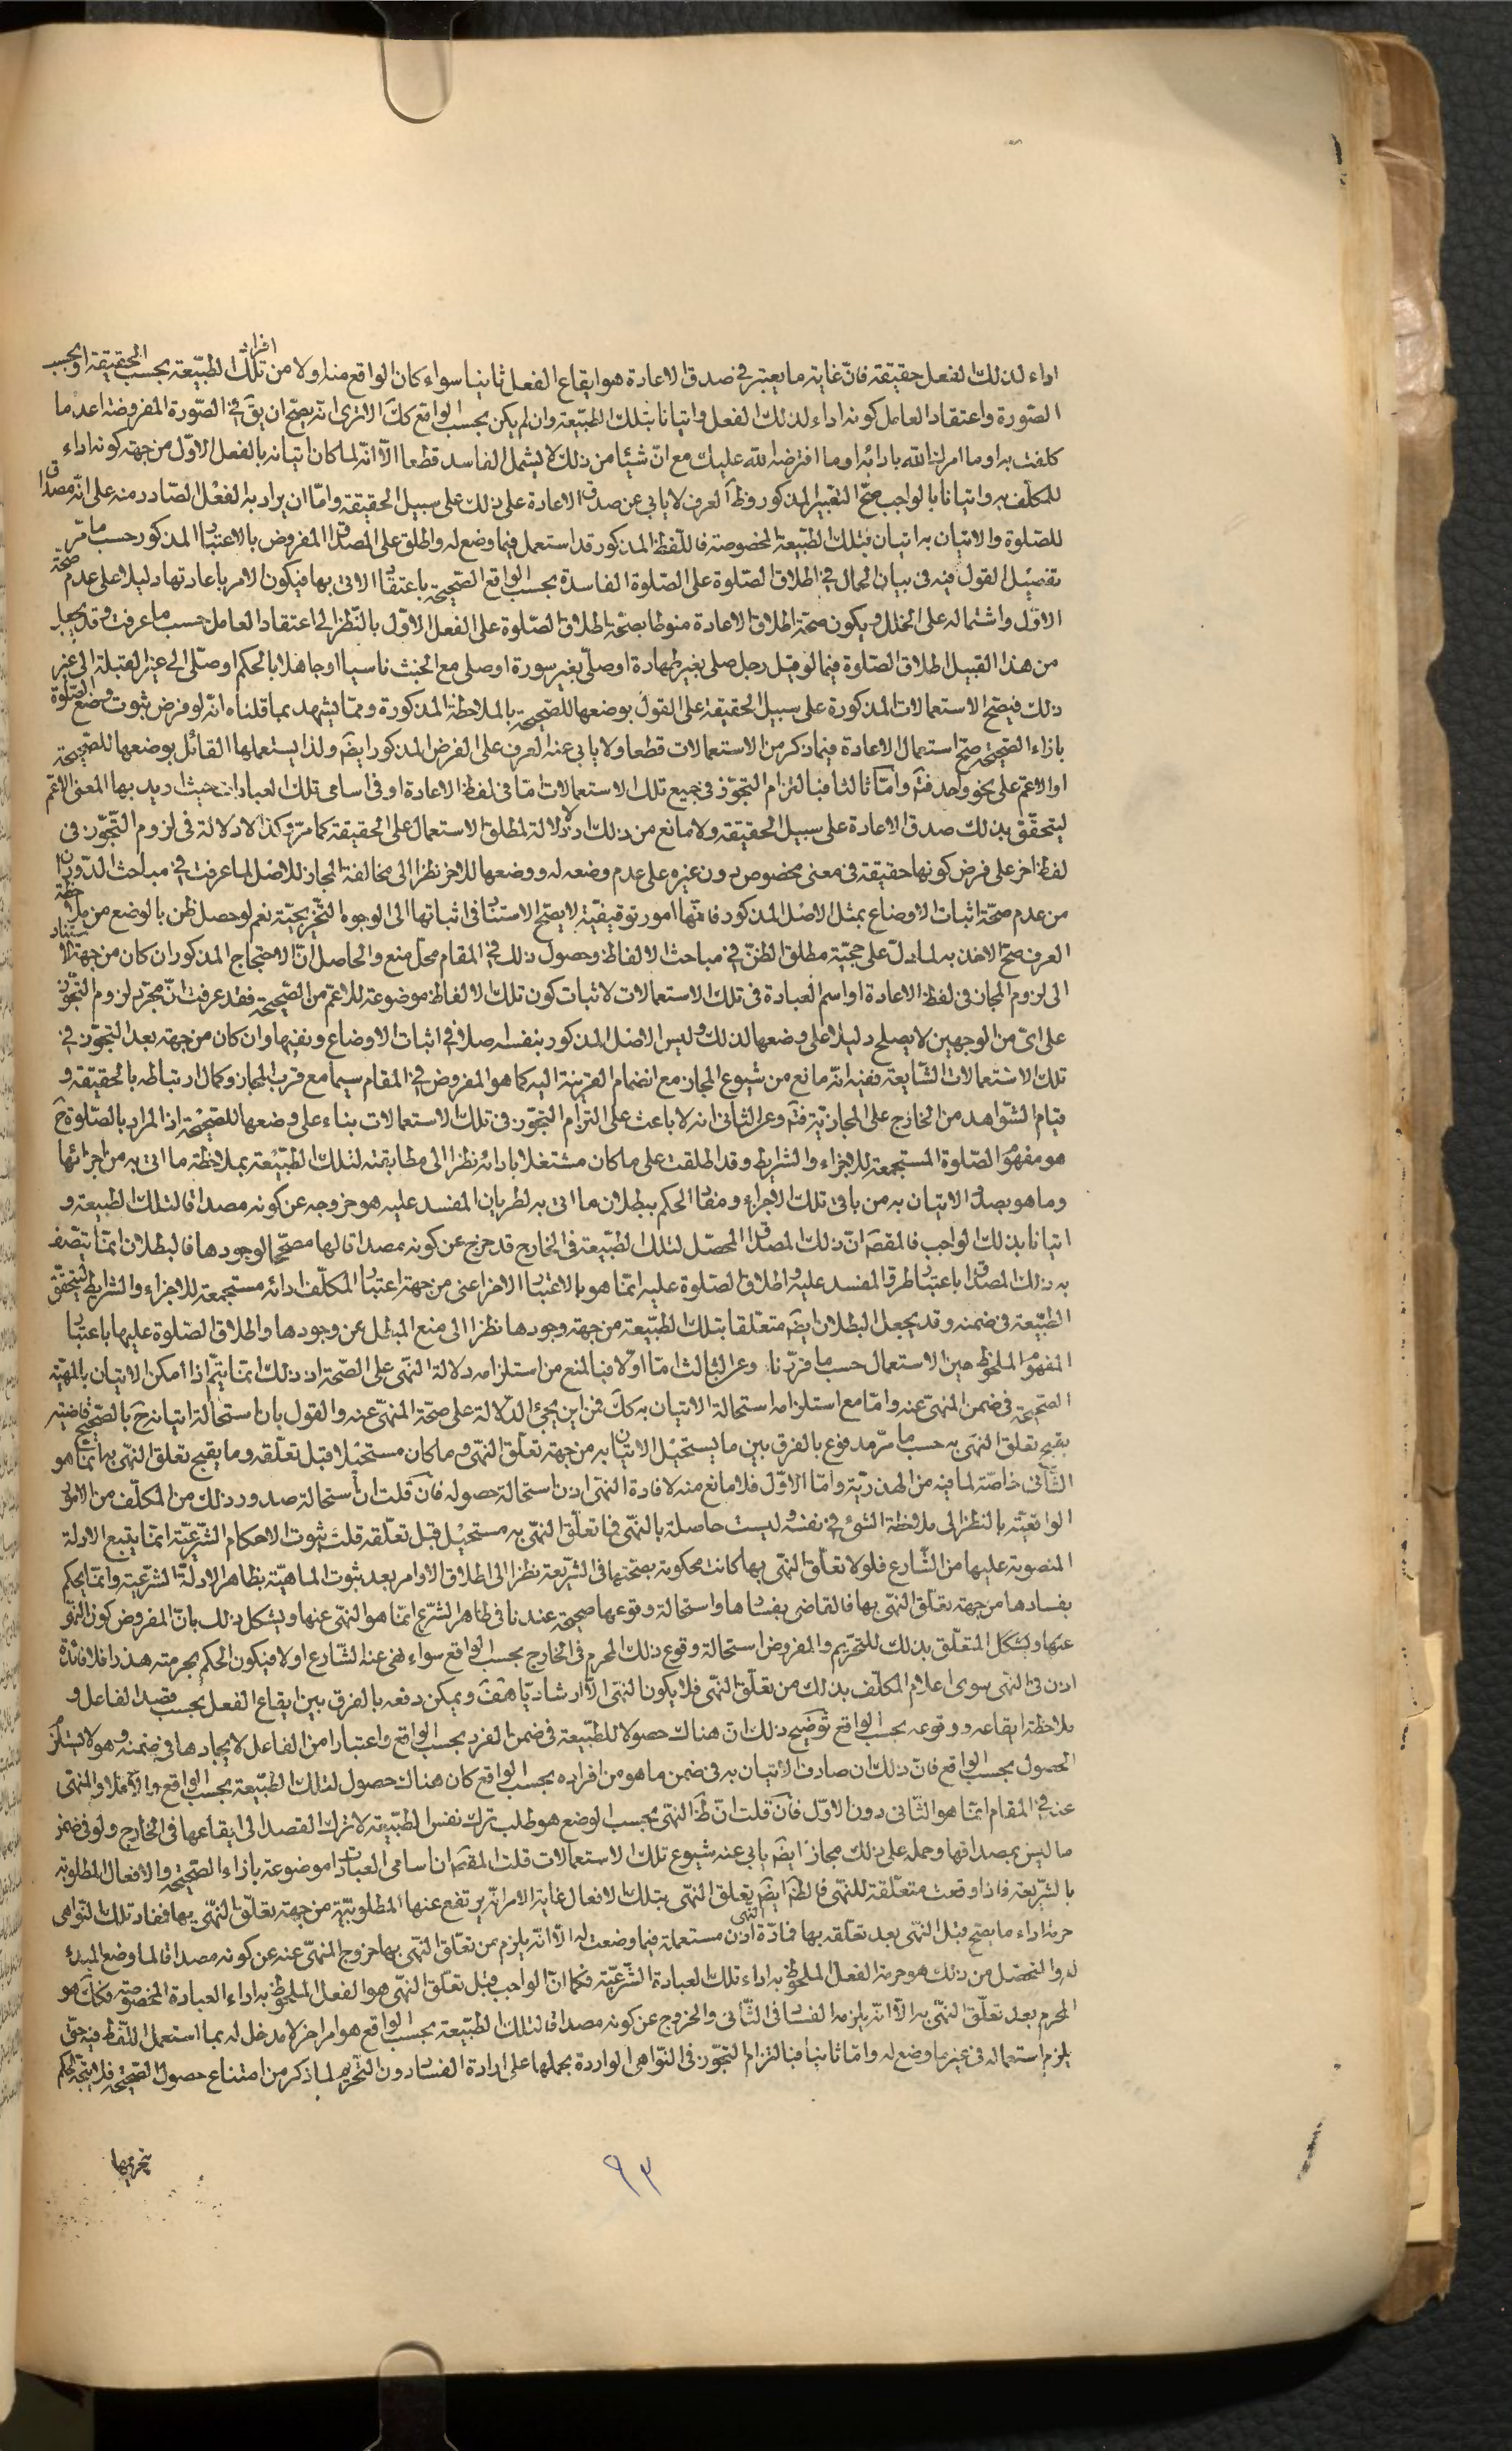 اداء لذلك الفعل حقيقة فان غاية ما يعتبر في صدق الاعادة هو ايقاع الفعل ثانيا سواء كان الواقع منه اولا من افراد تلك الطبيعة بحسب الحقيقة او بحسب
الصورة واعتقاد العامل كونه اداء لذلك الفعل واتيانا بتلك الطبيعة وان لم يكن بحسب الواقع كك الا ترى انه يصح ان يق في الصورة المفروضة اعد ما
كلفت به او ما امرك الله بادائه او ما افترضه الله عليك مع ان شيئا من ذلك لا يشمل الفاسد قطعا الا انه لما كان اتيانه بالفعل الاول من جهة كونه اداء
للمكلف به واتيانا بالواجب صح التعبير المذكور وظ العرف لا يابى عن صدق الاعادة على ذلك على سبيل الحقيقة واما ان يراد به الفعل الصادر منه على انه مصداق
للصلوة والاتيان به اتيان بتلك الطبيعة المخصوصة فاللفظ المذكور قد استعمل فيما وضع له واطلق على المصداق المفروض بالاعتبار المذكور حسب ما مر
تفصيل القول فيه في بيان الحال في اطلاق الصلوة على الصلوة الفاسدة بحسب الواقع الصحيحة باعتقاد الاتي بها فيكون الامر باعادتها دليلا على عدم صحة
الاول واشتماله على الخلل ويكون صحة اطلاق الاعادة منوطا بصحة اطلاق الصلوة على الفعل الاول بالنظر الى اعتقاد العامل حسب ما عرفت وقد يجعل
من هذا القبيل اطلاق الصلوة فيما لو قيل رجل صلى بغير طهارة او صلى بغير سورة او صلى مع الخبث ناسيا او جاهلا بالحكم او صلى الى غير القبلة الى غير
ذلك فيصح الاستعمالات المذكورة على سبيل الحقيقة على القول بوضعها للصحيحة بالملاحظة المذكورة ومما يشهد بما قلناه انه لو فرض ثبوت وضع الصلوة
بازاء الصحيحة صح استعمال الاعادة فيما ذكر من الاستعمالات قطعا ولا يابى عنه العرف على الفرض المذكور ايضا ولذا يستعملها القائل بوضعها للصحيحة
او الاعم على نحو واحد فت واما ثالثا فبالتزام التجوز في جميع تلك الاستعمالات اما في لفظ الاعادة او في اسامي تلك العبادات حيث اريد بها المعنى الاعم
ليتحقق بذلك صدق الاعادة على سبيل الحقيقة ولا مانع من ذلك اذ لا دلالة لمطلق الاستعمال على الحقيقة كما مر وكذا لا دلالة في لزوم التجوز في
لفظ اخر على فرض كونها حقيقة في معنى مخصوص دون غيره على عدم وضعه له ووضعها للاخر نظرا الى مخالفة المجاز للاصل لما عرفت في مباحث الدوران
من عدم صحة اثبات الاوضاع بمثل الاصل المذكور فانها امور توقيفية لا يصح الاستناد في اثباتها الى الوجوه التخريجية نعم لو حصل ظن بالوضع من ملاحظة
العرف صح الاخذ به لما دل على حجية مطلق الظن في مباحث الالفاظ وحصول ذلك في المقام محل منع والحاصل ان الاحتجاج المذكور ان كان من جهة الاستناد
الى لزوم المجاز في لفظ الاعادة او اسم العبادة في تلك الاستعمالات لاثبات كون تلك الالفاظ موضوعة للاعم من الصحيحة فقد عرفت ان مجرد لزوم التجوز
على اي من الوجهين لا يصلح دليلا على وضعها لذلك وليس الاصل المذكور بنفسه صلا في اثبات الاوضاع ونفيها وان كان من جهة بعد التجوز في
تلك الاستعمالات الشايعة ففيه انه مانع من شيوع المجاز مع انضمام القرينة اليه كما هو المفروض في المقام سيما مع قرب المجاز وكمال ارتباطه بالحقيقة و
قيام الشواهد من الخارج على المجازية فت وعن الثاني انه لا باعث على التزام التجوز في تلك الاستعمالات بناء على وضعها للصحيحة اذ المراد بالصلوة ح
هو مفهوم الصلوة المستجمعة للاجزاء والشرايط وقد اطلقت على ما كان مشتغلا بادائه نظرا الى مطابقته لتلك الطبيعة بملاحظة ما اتى به من اجزائها
وما هو بصدد الاتيان به من باقي تلك الاجزاء ومفاد الحكم ببطلان ما اتى به لطريان المفسد عليه هو خروجه عن كونه مصداقا لتلك الطبيعة و
اتيانا بذلك الواجب فالمقصود ان ذلك المصداق المحصل لتلك الطبيعة في الخارج قد خرج عن كونه مصداقا لها مصححا لوجودها فالبطلان انما يتصف
به ذلك المصداق باعتبار طرو المفسد عليه واطلاق الصلوة عليه انما هو بالاعتبار الاخر اعني من جهة اعتبار المكلف ادائه مستجمعة للاجزاء والشرايط ليتحقق
الطبيعة في ضمنه وقد يجعل البطلان ايضا متعلقا بتلك الطبيعة من جهة وجودها نظرا الى منع المبطل عن وجودها واطلاق الصلوة عليها باعتبار
المفهوم الملحوظ حين الاستعمال حسب ما قررنا وعن الثالث اما اولا فبالمنع من استلزامه دلالة النهي على الصحة اذ ذلك انما يتم اذا امكن الاتيان بالمهية
الصحيحة في ضمن المنهي عنه واما مع استلزامه استحالة الاتيان به كك فمن اين يجئ الدلالة على صحة المنهي عنه والقول بان استحالة اتيانه ح بالصحيح قاضية
بقبح تعلق النهي به حسب ما مر مدفوع بالفرق بين ما يستحيل الاتيان به من جهة تعلق النهي وما كان مستحيلا قبل تعلقه وما يقبح تعلق النهي به انما هو
الثاني خاصة لما فيه من الهذرية واما الاول فلا مانع منه لافادة النهي اذن استحالة حصوله فان قلت ان استحالة صدور ذلك من المكلف من الامور
الواقعية بالنظر الى ملاحظة الشئ في نفسه وليست حاصلة بالنهي فما تعلق النهي به مستحيل قبل تعلقه قلت ثبوت الاحكام الشرعية انما يتبع الادلة
المنصوبة عليها من الشارع فلولا تعلق النهي بها كانت محكومة بصحتها في الشريعة نظرا الى اطلاق الاوامر بعد ثبوت الماهية بظاهر الادلة الشرعية وانما يحكم
بفسادها من جهة تعلق النهي بها فالقاضي بفسادها واستحالة وقوعها صحيحة عندنا في ظاهر الشرع انما هو النهي عنها ويشكل ذلك بان المفروض كون النهي
عنها وبشكل المتعلق بذلك للتحريم والمفروض استحالة وقوع ذلك المحرم في الخارج بحسب الواقع سواء نهى عنه الشارع اولا فيكون الحكم بحرمته هذرا فلا فائدة
اذن في النهي سوى اعلام المكلف بذلك من تعلق النهي فلا يكون النهي الا ارشاديا هف ويمكن دفعه بالفرق بين ايقاع الفعل بحسب قصد الفاعل و
ملاحظة ايقاعه ووقوعه بحسب الواقع توضيح ذلك ان هناك حصولا للطبيعة في ضمن الفرد بحسب الواقع واعتبارا من الفاعل لايجادها في ضمنه وهو لا يستلزم
الحصول بحسب الواقع فان ذلك ان صادف الاتيان به في ضمن ما هو من افراده بحسب الواقع كان هناك حصول لتلك الطبيعة بحسب الواقع والا فلا والمنهي
عنه في المقام انما هو الثاني دون الاول فان قلت ان ظ النهي بحسب الوضع هو طلب ترك نفس الطبيعة لا ترك القصد الى ايقاعها في الخارج ولو في ضمن
ما ليس بمصداقها وحمله على ذلك مجاز ايضا يابى عنه شيوع تلك الاستعمالات قلت المقصود ان اسامي العبادات موضوعة بازاء الصحيحة والافعال المطلوبة
بالشريعة فاذا وقعت متعلقة للنهي فالظ ايضا تعلق النهي بتلك الافعال غاية الامر انه يرتفع عنها المطلوبية من جهة تعلق النهي بها فمفاد تلك النواهي
حرمة اداء ما يصح قبل النهي بعد تعلقه بها فمادة النهي اذن مستعملة فيما وضعت له الا انه يلزم من تعلق النهي بها خروج المنهي عنه عن كونه مصداقا لما وضع المبدء
له والمتحصل من ذلك هو حرمة الفعل الملحوظ به اداء تلك العبادة الشرعية فكما ان الواجب قبل تعلق النهي هو الفعل الملحوظ به اداء العبادة المخصوصة فكك هو
المحرم بعد تعلق النهي به الا انه يلزمه الفساد في الثاني والخروج عن كونه مصداقا لتلك الطبيعة بحسب الواقع هو امر اخر لا مدخل له بما استعمل اللفظ فيه حتى
يلزم استعماله في غير ما وضع له واما ثانيا فبالتزام التجوز في النواهي الواردة بحملها على ارادة الفساد دون التحريم لما ذكر من امتناع حصول الصحيحة فلا يتجه الحكم
بتحريمها
٩٣